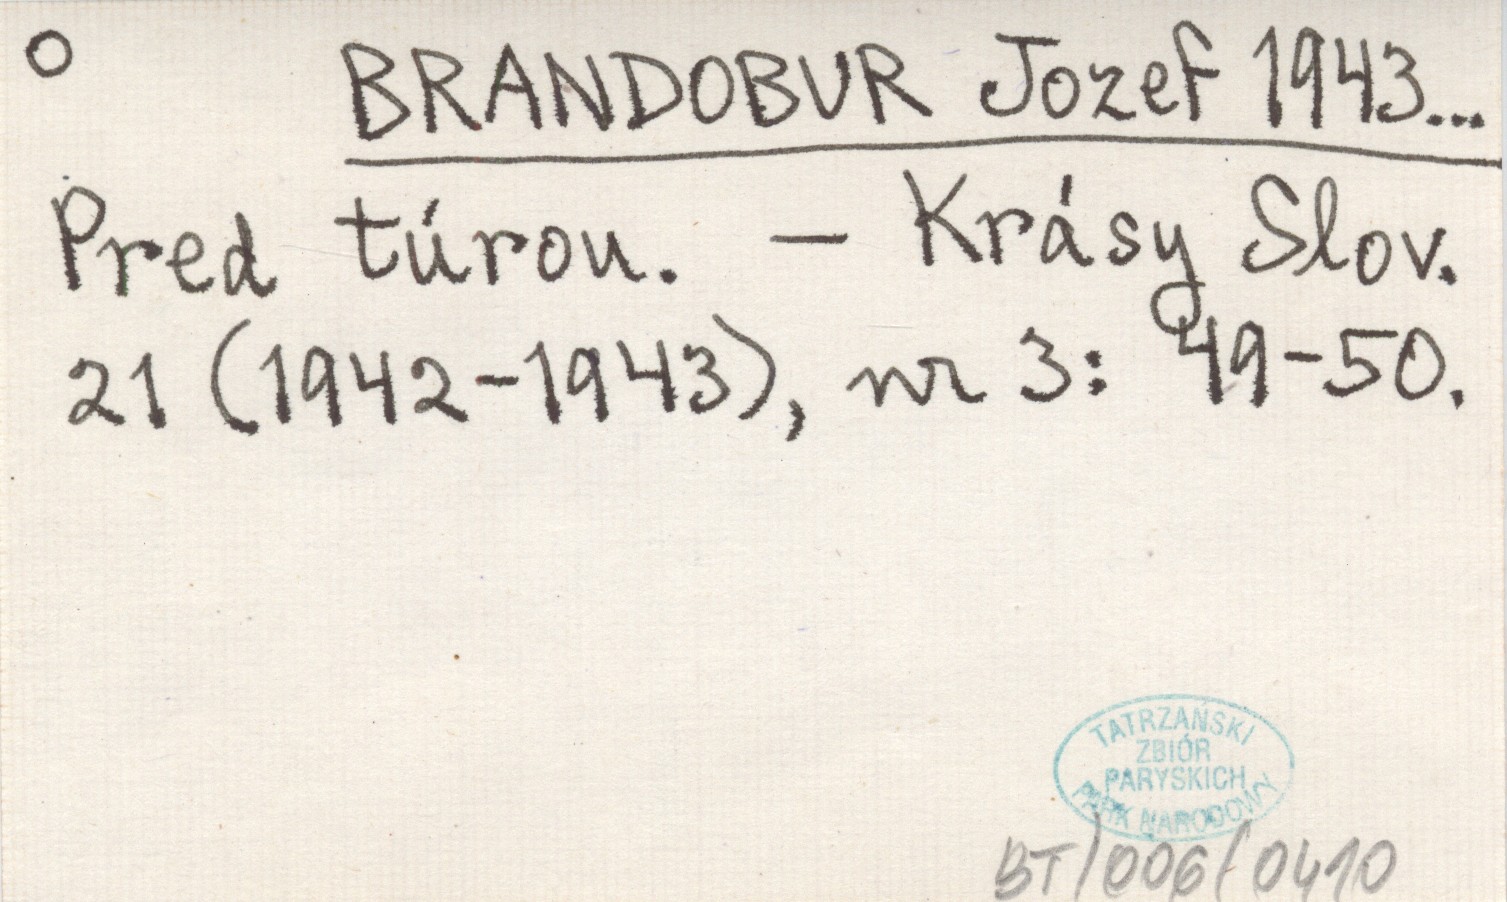 O
BRANDOBUR Jozef 1943...
Pred túrou. – Krásy Slov.
21 (1942-1943), nr 3: 49-50.
TATRZAŃSKI
ZBIÓR
PARYSKICH
PARK NARODOWY
BT/006/0410